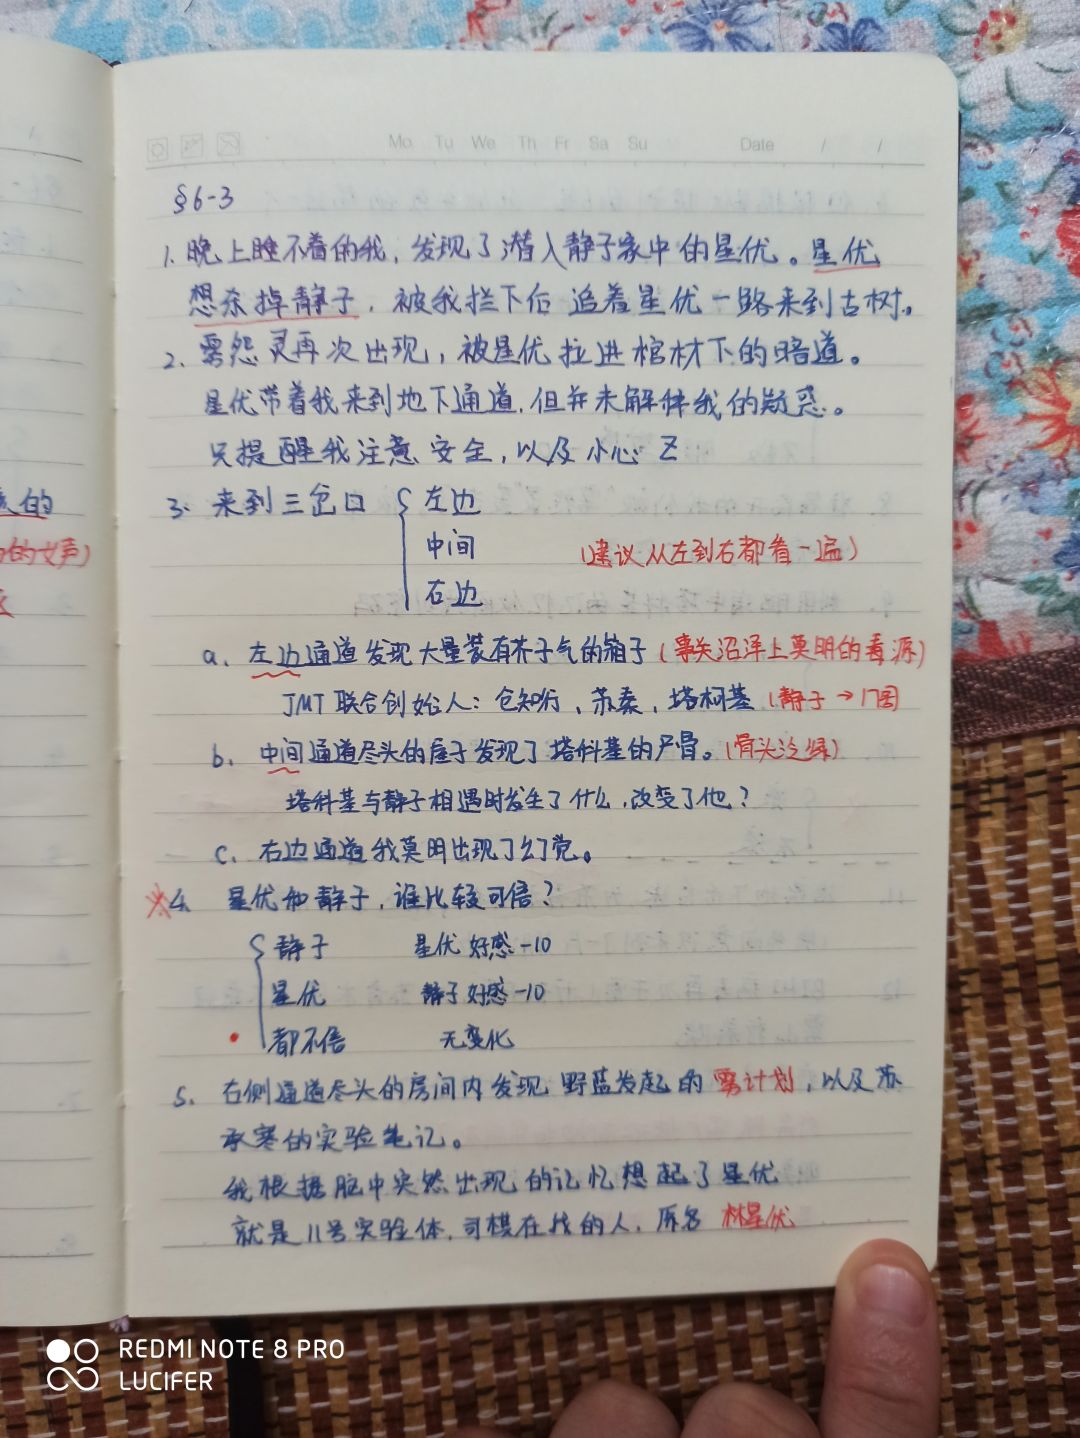 Mo Tu We Th Fr Sa Su Date / /
§6-3
1. 晚上睡不着的我，发现了潜入静子家中的星优。星优
想杀掉静子，被我拦下后 追着星优一路来到古树。
2. 雾怨灵再次出现，被星优拉进棺材下的暗道。
星优带着我来到地下通道，但并未解释我的疑惑。
只提醒我注意安全，以及小心 Z
3. 来到三岔口 { 左边
中间 （建议从左到右都看一遍）
右边
a. 左边通道发现大量装有芥子气的箱子（事关沼泽上莫明的毒源）
JMT 联合创始人：仓知昕、苏秦、塔柯基（静子→
b. 中间通道尽头的屋子发现了塔科基的尸骨。（骨头泛绿）
塔科基与静子相遇时发生了什么，改变了他？
c. 右边通道我莫明出现了幻觉。
※4. 星优和静子，谁比较可信？
{ 静子 星优 好感 -10
星优 静子 好感 -10
• 都不信 无变化
5. 右侧通道尽头的房间内发现 野蓝发起的 雾计划，以及苏
承寒的实验笔记。
我根据脑中突然出现的记忆想起了星优
就是 11号实验体，司棋在找的人，原名 林星优
底的
的女声）
REDMI NOTE 8 PRO
LUCIFER